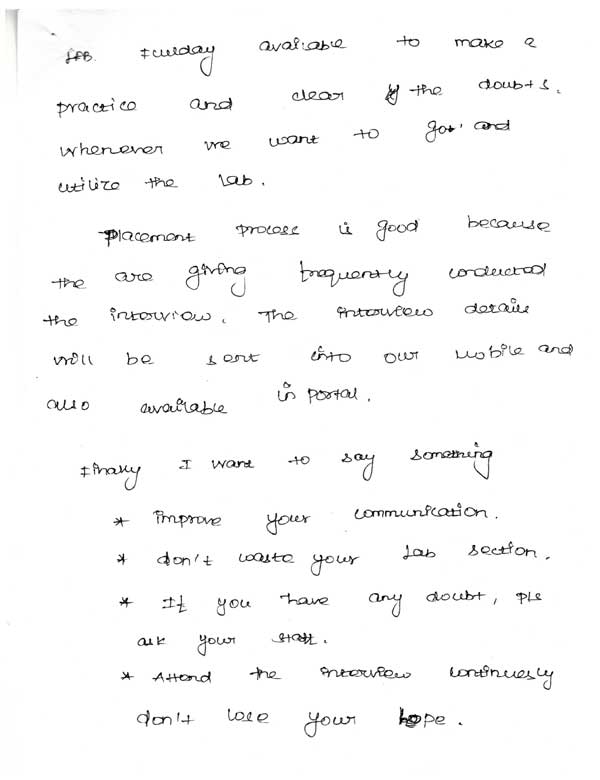 Lab. Fullday available to make a
practice and clear the doubts.
whenever we want to go and
utilize the lab.
Placement process is good because
the are giving frequently conducted
the interview. The interview details
will be sent into our mobile and
also available in portal.
Finally I want to say something
* improve your communication.
* don't waste your lab section.
* If you have any doubt, pls
ask your staff.
* Attend the interview continuesly
don't lose your hope.